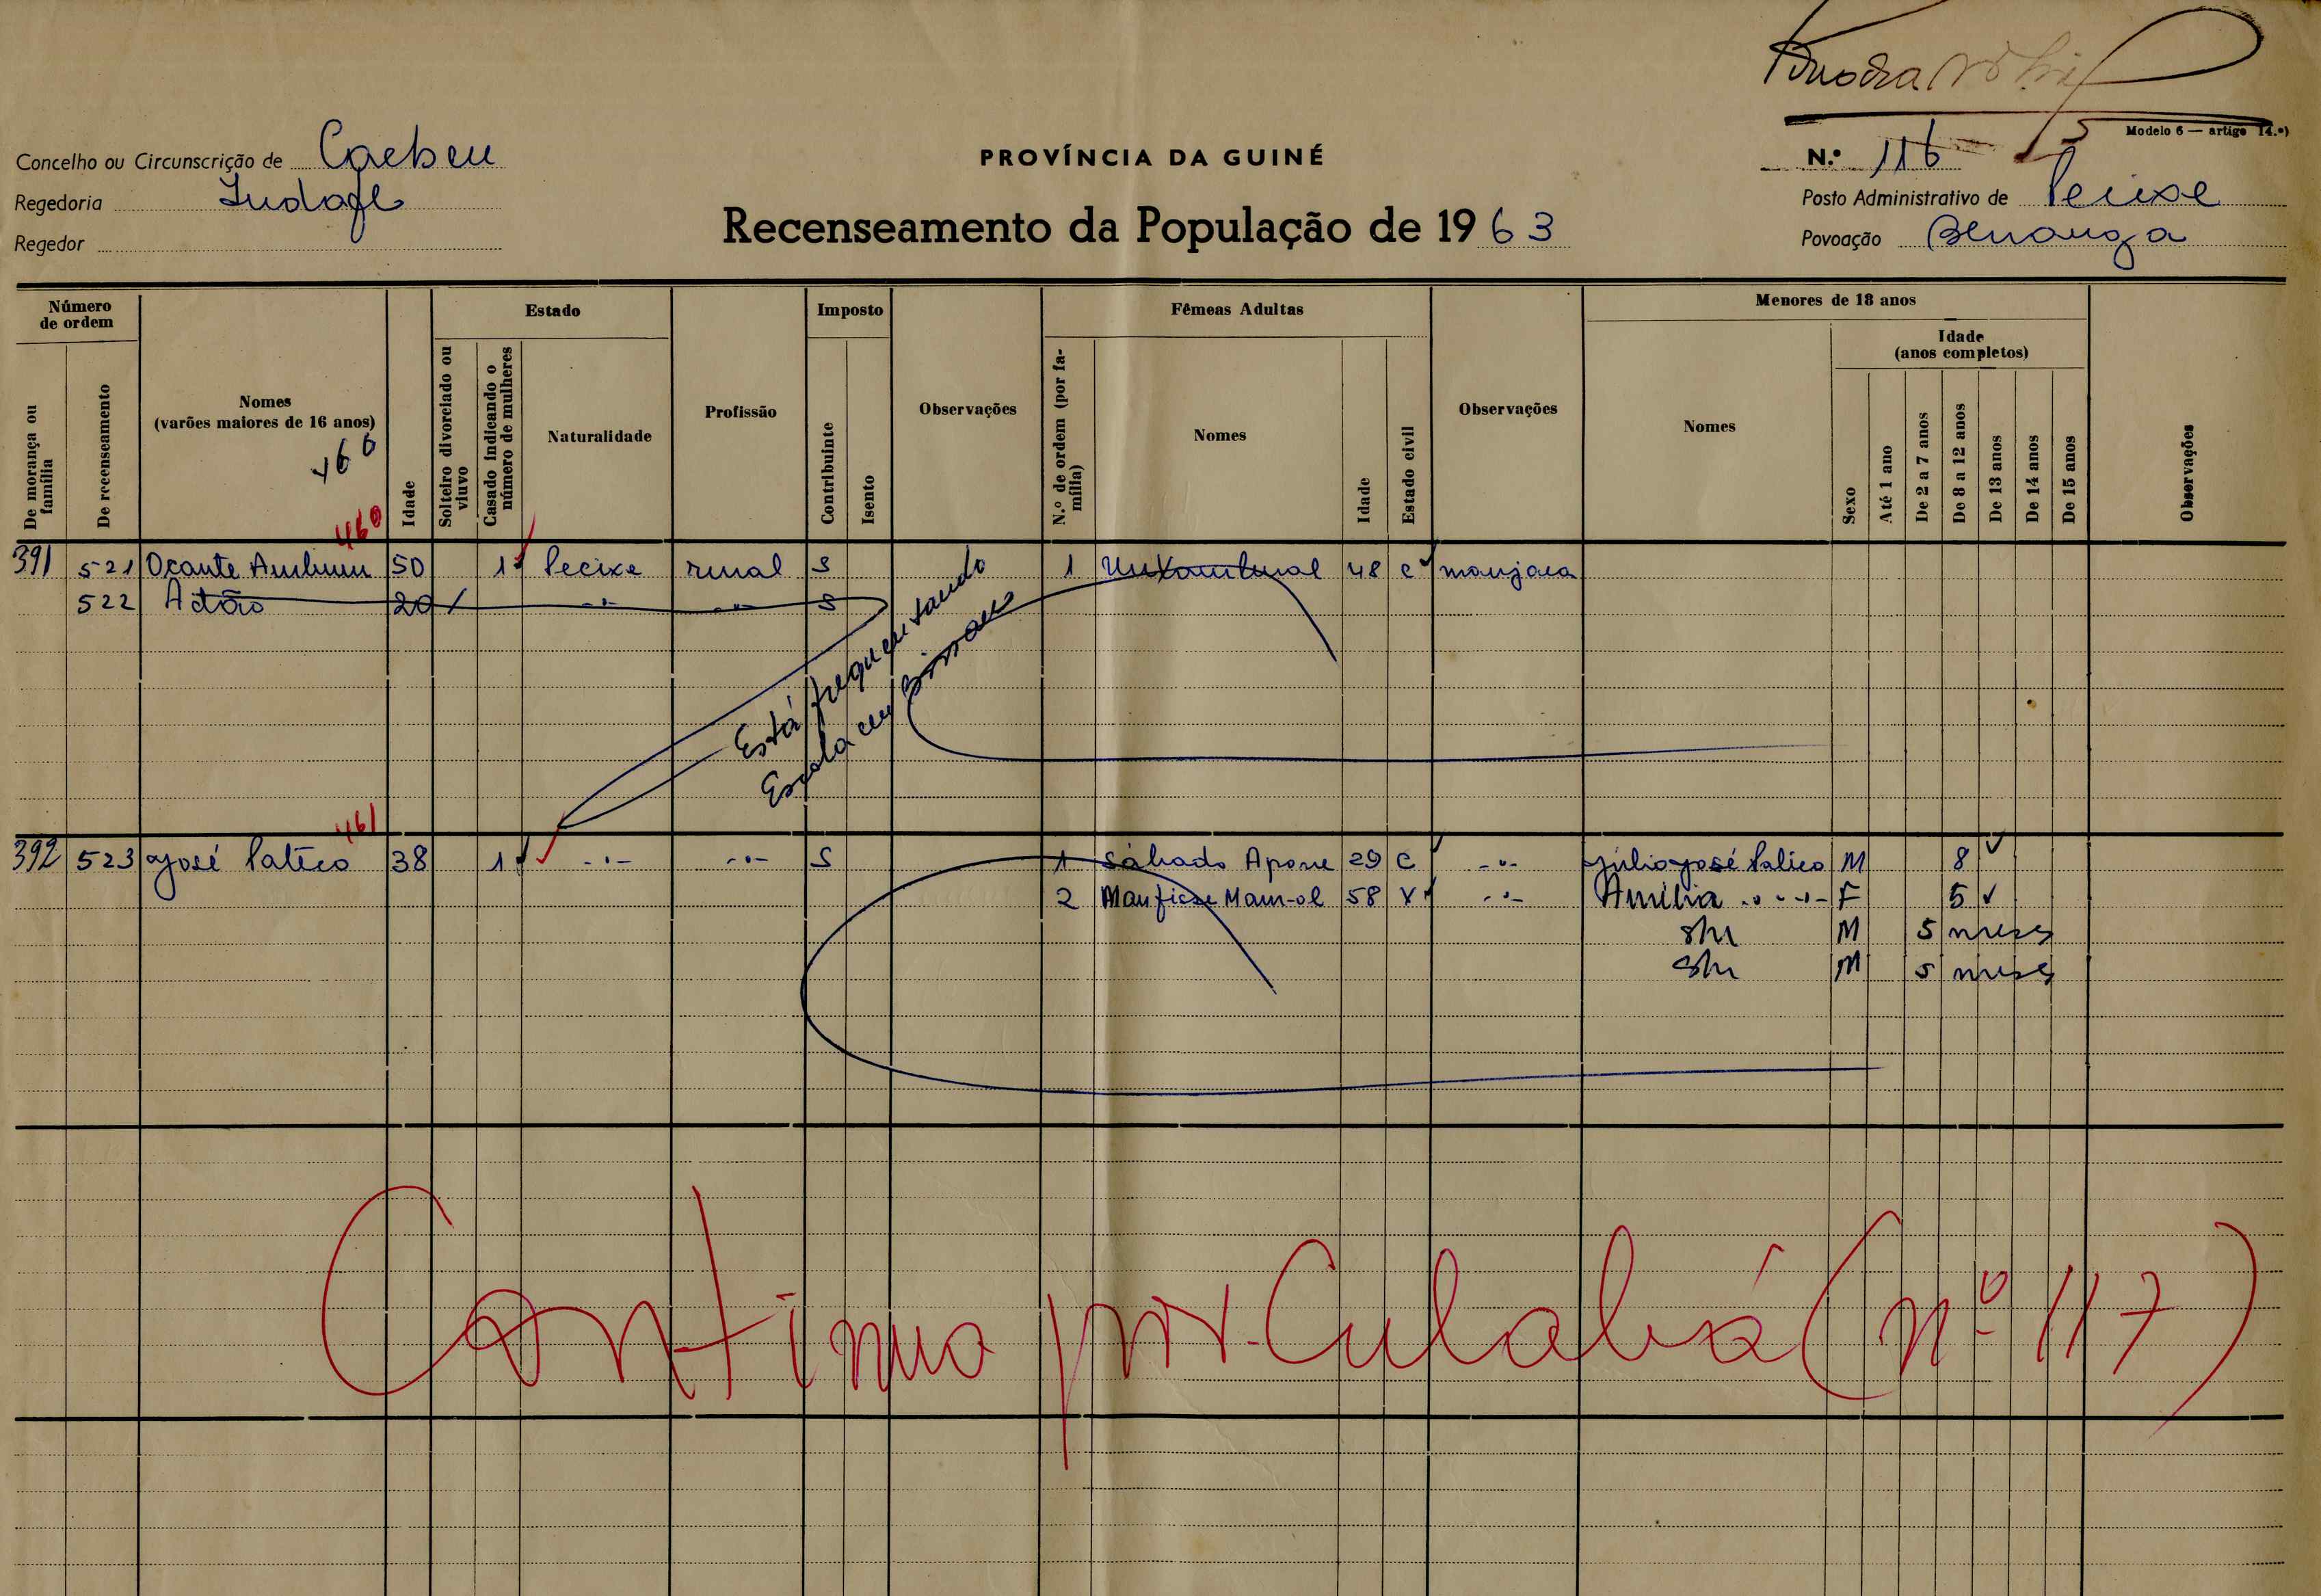 Modelo 6 — artigo 14.º)
Concelho ou Circunscrição de
PROVÍNCIA DA GUINÉ
N.º 116
Regedoria
Recenseamento da População de 1963
Posto Administrativo de Pecixe
Regedor
Povoação
Número de ordem
De morança ou família
De recenseamento
Nomes
(varões maiores de 16 anos)
466
Idade
Estado
Solteiro divorciado ou viuvo
Casado indicando o número de mulheres
Naturalidade
Profissão
Imposto
Contribuinte
Isento
Observações
Fêmeas Adultas
N.º de ordem (por família)
Nomes
Idade
Estado civil
Observações
Menores de 18 anos
Nomes
Sexo
Idade
(anos completos)
Até 1 ano
De 2 a 7 anos
De 8 a 12 anos
De 13 anos
De 14 anos
De 15 anos
Observações
460
391 521 Ocante 50 1 Pecixe rural S 1 48 C manjaca
522 Adão 20 S
Está frequentando
Escola em Bissau
461
392 523 José 38 1 S 1 Sábado Apone 29 C Júlio José M 8
2 58 V F 5
M 5 meses
M 5 meses
Continua por Culabá (nº 117)